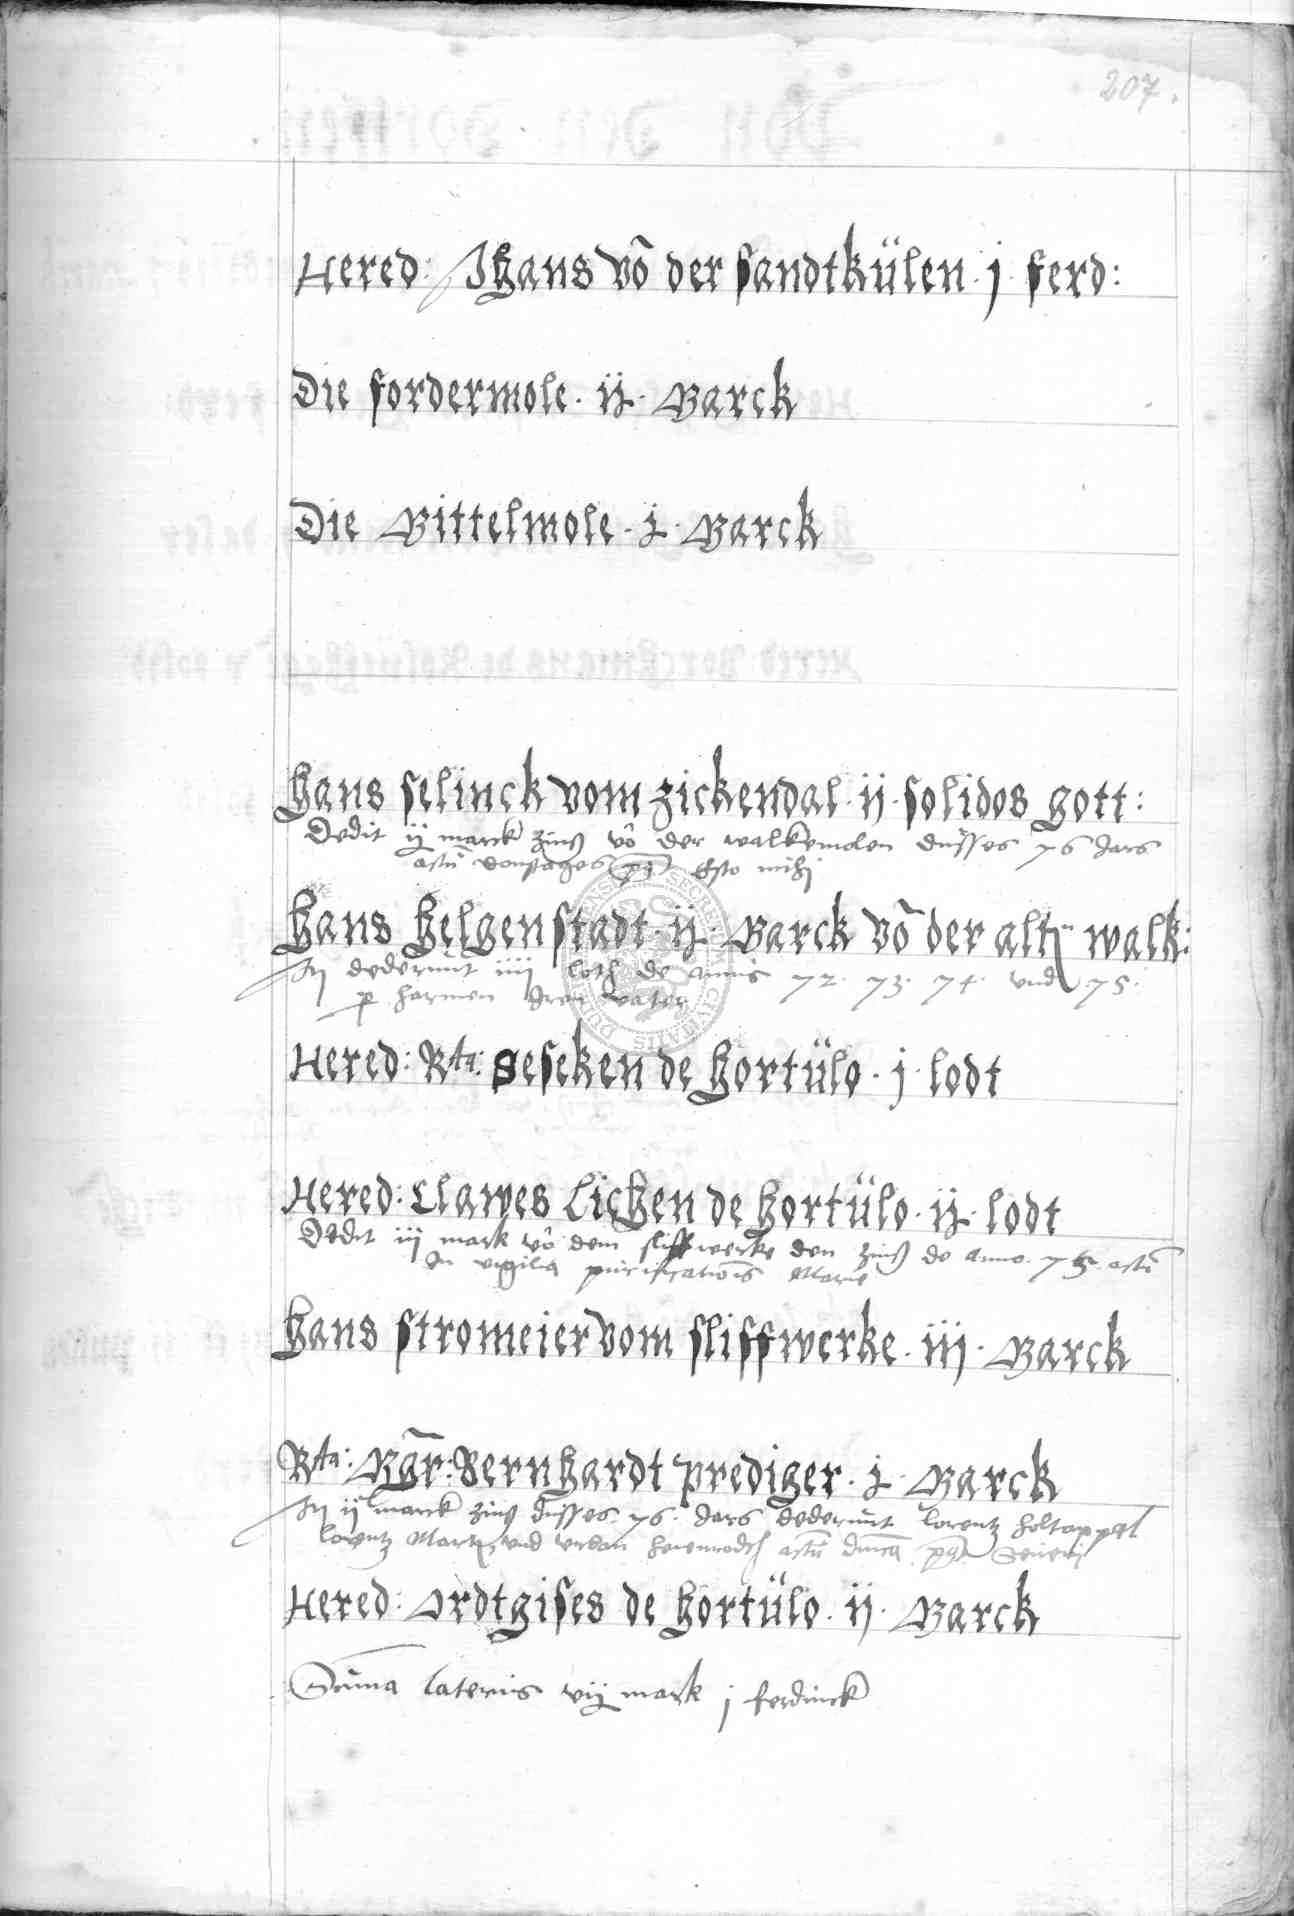 207.
Hered: Jhans vō der sandtkülen · j · ferd:
Die fordermole · ij · Marck
Die Mittelmole · j · Marck
Hans selinck vom zickendal · ij · solidos gott:
Dedit ij marck zinß vō der walkemolen dusses 76 Jars
actū donstages Esto mihi
Hans Helgenstadt · ij · Marck vō der alten walk:
dederunt iiij loth de annis 72 · 73 · 74 · vnd 75 ·
p harmen vater
Hered: Rta: Seseken de Hortülo · j · lodt
Hered: Clawes Lichen de Hortülo · ij · lodt
Dedit iij mark vō dem sliffwerke den zinß de anno · 75 · actū
In vigilia purificationis Marie
Hans stromeier vom sliffwerke · iij · Marck
Rta: Mgr: Bernhardt prediger · j · Marck
ij marck zinß dusses 76 · Jars dederunt lorentz holtappel
lorentz vnd vrban actū Seueri
Hered: Ordtgises de Hortülo · ij · Marck
Sūma lateris vij mark j ferdinck